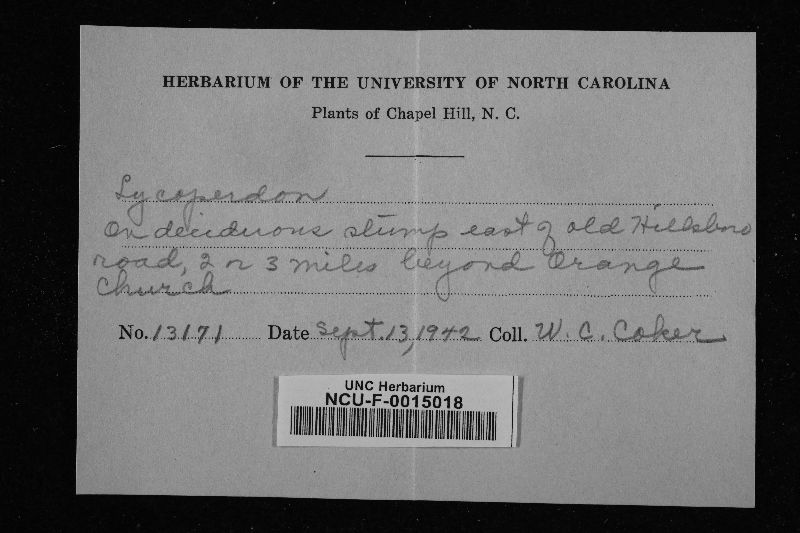 HERBARIUM OF THE UNIVERSITY OF NORTH CAROLINA
Plants of Chapel Hill, N. C.
Lycoperdon
On deciduous stump east of old Hillsboro
road, 2 or 3 miles beyond Orange
Church
No. 13171 Date Sept. 13, 1942 Coll. W. C. Coker
UNC Herbarium
NCU-F-0015018